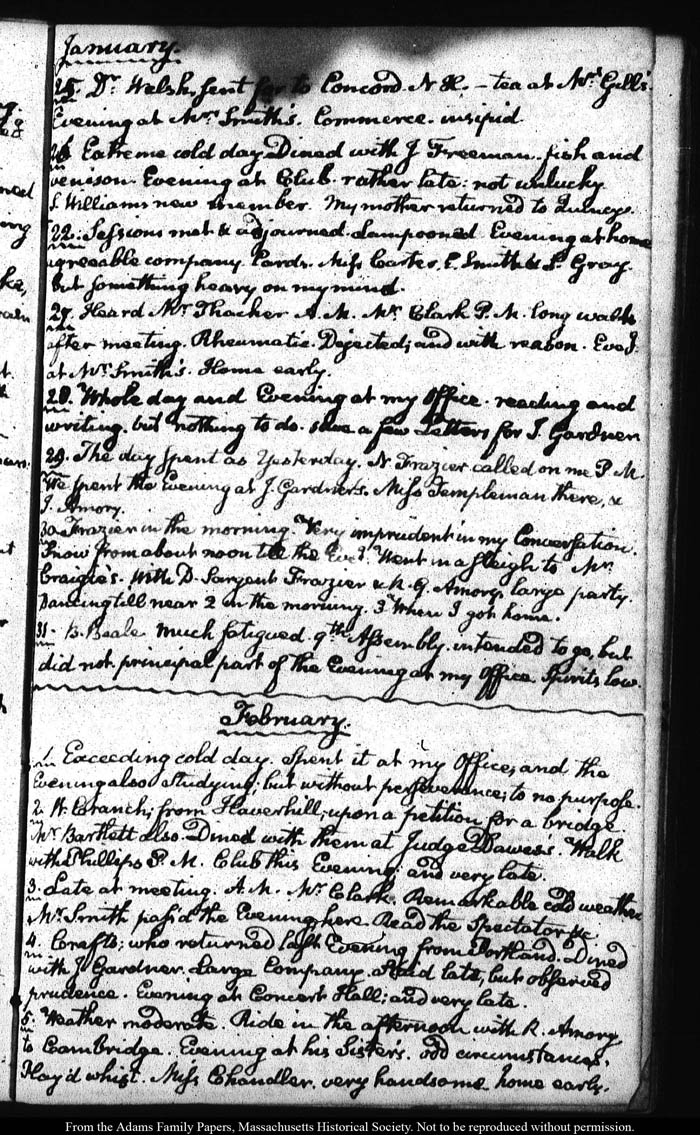 January.
25. Dr. Welsh, sent for to Concord. N H. – tea at Mrs. Gill's.
Evening at Mrs. Smith's. Commerce. insipid.
26. Extreme cold day. Dined with J Freeman. fish and
venison. Evening at Club. rather late: not unlucky.
S. Williams new member. My mother returned to Quincy.
Sessions met & adjourned. Lampooned. Evening at home
agreeable company. Cards. Miss Carter, E. Smith & S. Gray.
But something heavy on my mind.
27. Heard Mr Thacher A.M. Mr. Clark P.M. long walk
after meeting. Rheumatic. Dejected; and with reason. Eveg.
at Mrs. Smith's. Home early.
28. Whole day and Evening at my Office. reading and
writing. but nothing to do. save a few Letters for J. Gardner
29. The day spent as Yesterday. N Frazier called on me P.M.
We spent the Evening at J. Gardner's. Miss Templeman there, &
J. Amory.
30. Frazier in the morning. Very imprudent in my Conversation.
Snow from about noon till the Eveg. Went in a sleigh to Mr.
Craigie's. With D. Sargent Frazier & R. G. Amory. large party.
Dancing till near 2 in the morning. 3 When I got home.
31. B. Beale. Much fatigued. 9th. Assembly. intended to go, but
did not. principal part of the Evening at my Office. Spirits low.
February.
1. Exceeding cold day. Spent it at my Office, and the
Evening also studying; but without perseverance; to no purpose.
2. W. Cranch; from Haverhill; upon a petition for a bridge.
Mr. Bartlett also. Dined with them at Judge Dawes's. Walk
with Phillips P.M. Club this Evening; and very late.
3. Late at meeting. A.M. Mr Clark. Remarkable cold weather
Mr. Smith pass'd the Evening here. Read the Spectator &c.
4. Crafts; who returned last Evening from Portland. Dined
with J. Gardner. Large Company. Staid late, but observed
prudence. Evening at Concert Hall; and very late.
5. Weather moderate. Ride in the afternoon with R. Amory
to Cambridge. Evening at his Sister's. odd circumstances.
Play'd whist. Miss Chandler. very handsome. home early.
From the Adams Family Papers, Massachusetts Historical Society. Not to be reproduced without permission.